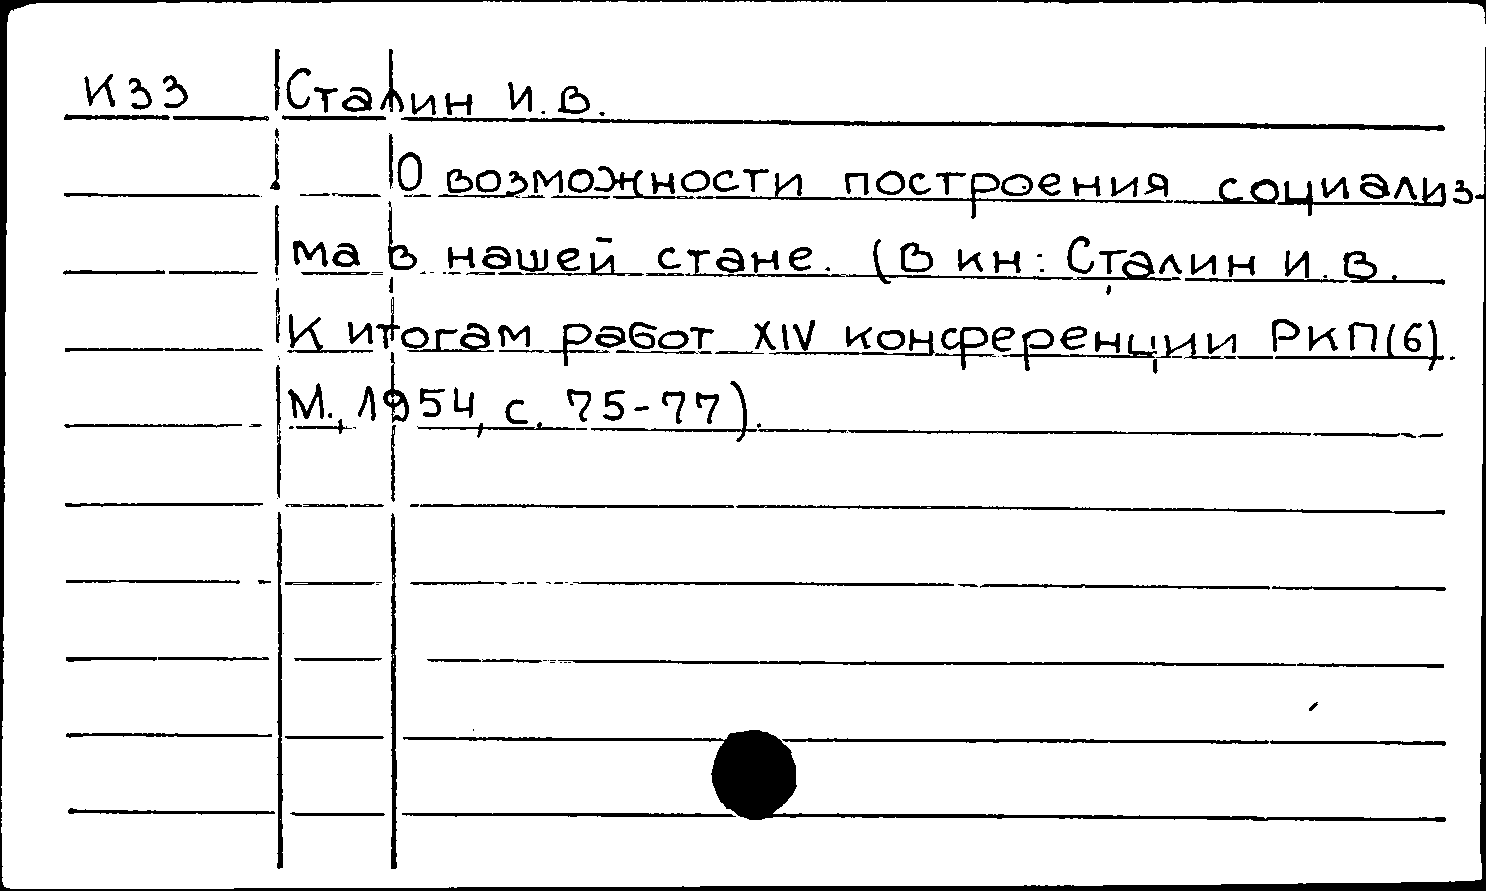 К33 Сталин И.В.
О возможности построения социализ-
ма в нашей стане. (В кн: Сталин И.В.
К итогам работ XIV конференции РКП(б).
М., 1954, с. 75-77).